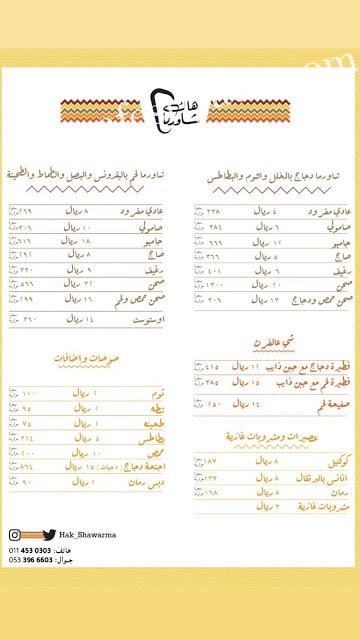 هاك شاورما
شاورما دجاج بالمخلل والثوم والبطاطس
عادي مفرود ٥ ريال ٣٣٨
صامولي ٦ ريال ٣٨٤
جامبو ١٢ ريال ٦٦٦
صاج ٥ ريال ٣٦٦
رغيف ٦ ريال ٤٠١
صحن ٢٠ ريال ١٣٠٠
صحن حمص ودجاج ١٣ ريال ٣٠٦
شاورما لحم بالبقدونس والبصل والطماط والطحينة
عادي مفرود ٨ ريال ٢٦٩
صامولي ١٠ ريال ٣٠٦
جامبو ١٨ ريال ٦١٦
صاج ٨ ريال ٢٩٢
رغيف ٩ ريال ٣٣٠
صحن ٣٢ ريال ٥٦٦
صحن حمص ولحم ١٦ ريال ٢٩٩
اوستوست ١٤ ريال ٣٦٠
شي عالفرن
فطيرة دجاج مع جبن ذايب ١٢ ريال ٤١٥
فطيرة لحم مع جبن ذايب ١٥ ريال ٣٨٥
صفيحة لحم ١٤ ريال ٢٥٠
صوصات وإضافات
ثوم ٢ ريال ١١٠
شطه ٢ ريال ٩٥
طحينه ٢ ريال ٧٥
بطاطس ٥ ريال ٣١٤
حمص ١٠ ريال ٢٠٠
اجنحة دجاج (٨ حبات) ١٥ ريال ٨٦٤
دبس رمان ٢ ريال ٩٠
عصيرات ومشروبات غازية
كوكتيل ٨ ريال ١٨٧
اناناس بالبرتقال ٨ ريال ١٣٧
رمان ٨ ريال ١٦٨
مشروبات غازية ٣ ريال
Hak_Shawarma
هاتف: 011 453 0303
جوال: 053 396 6603